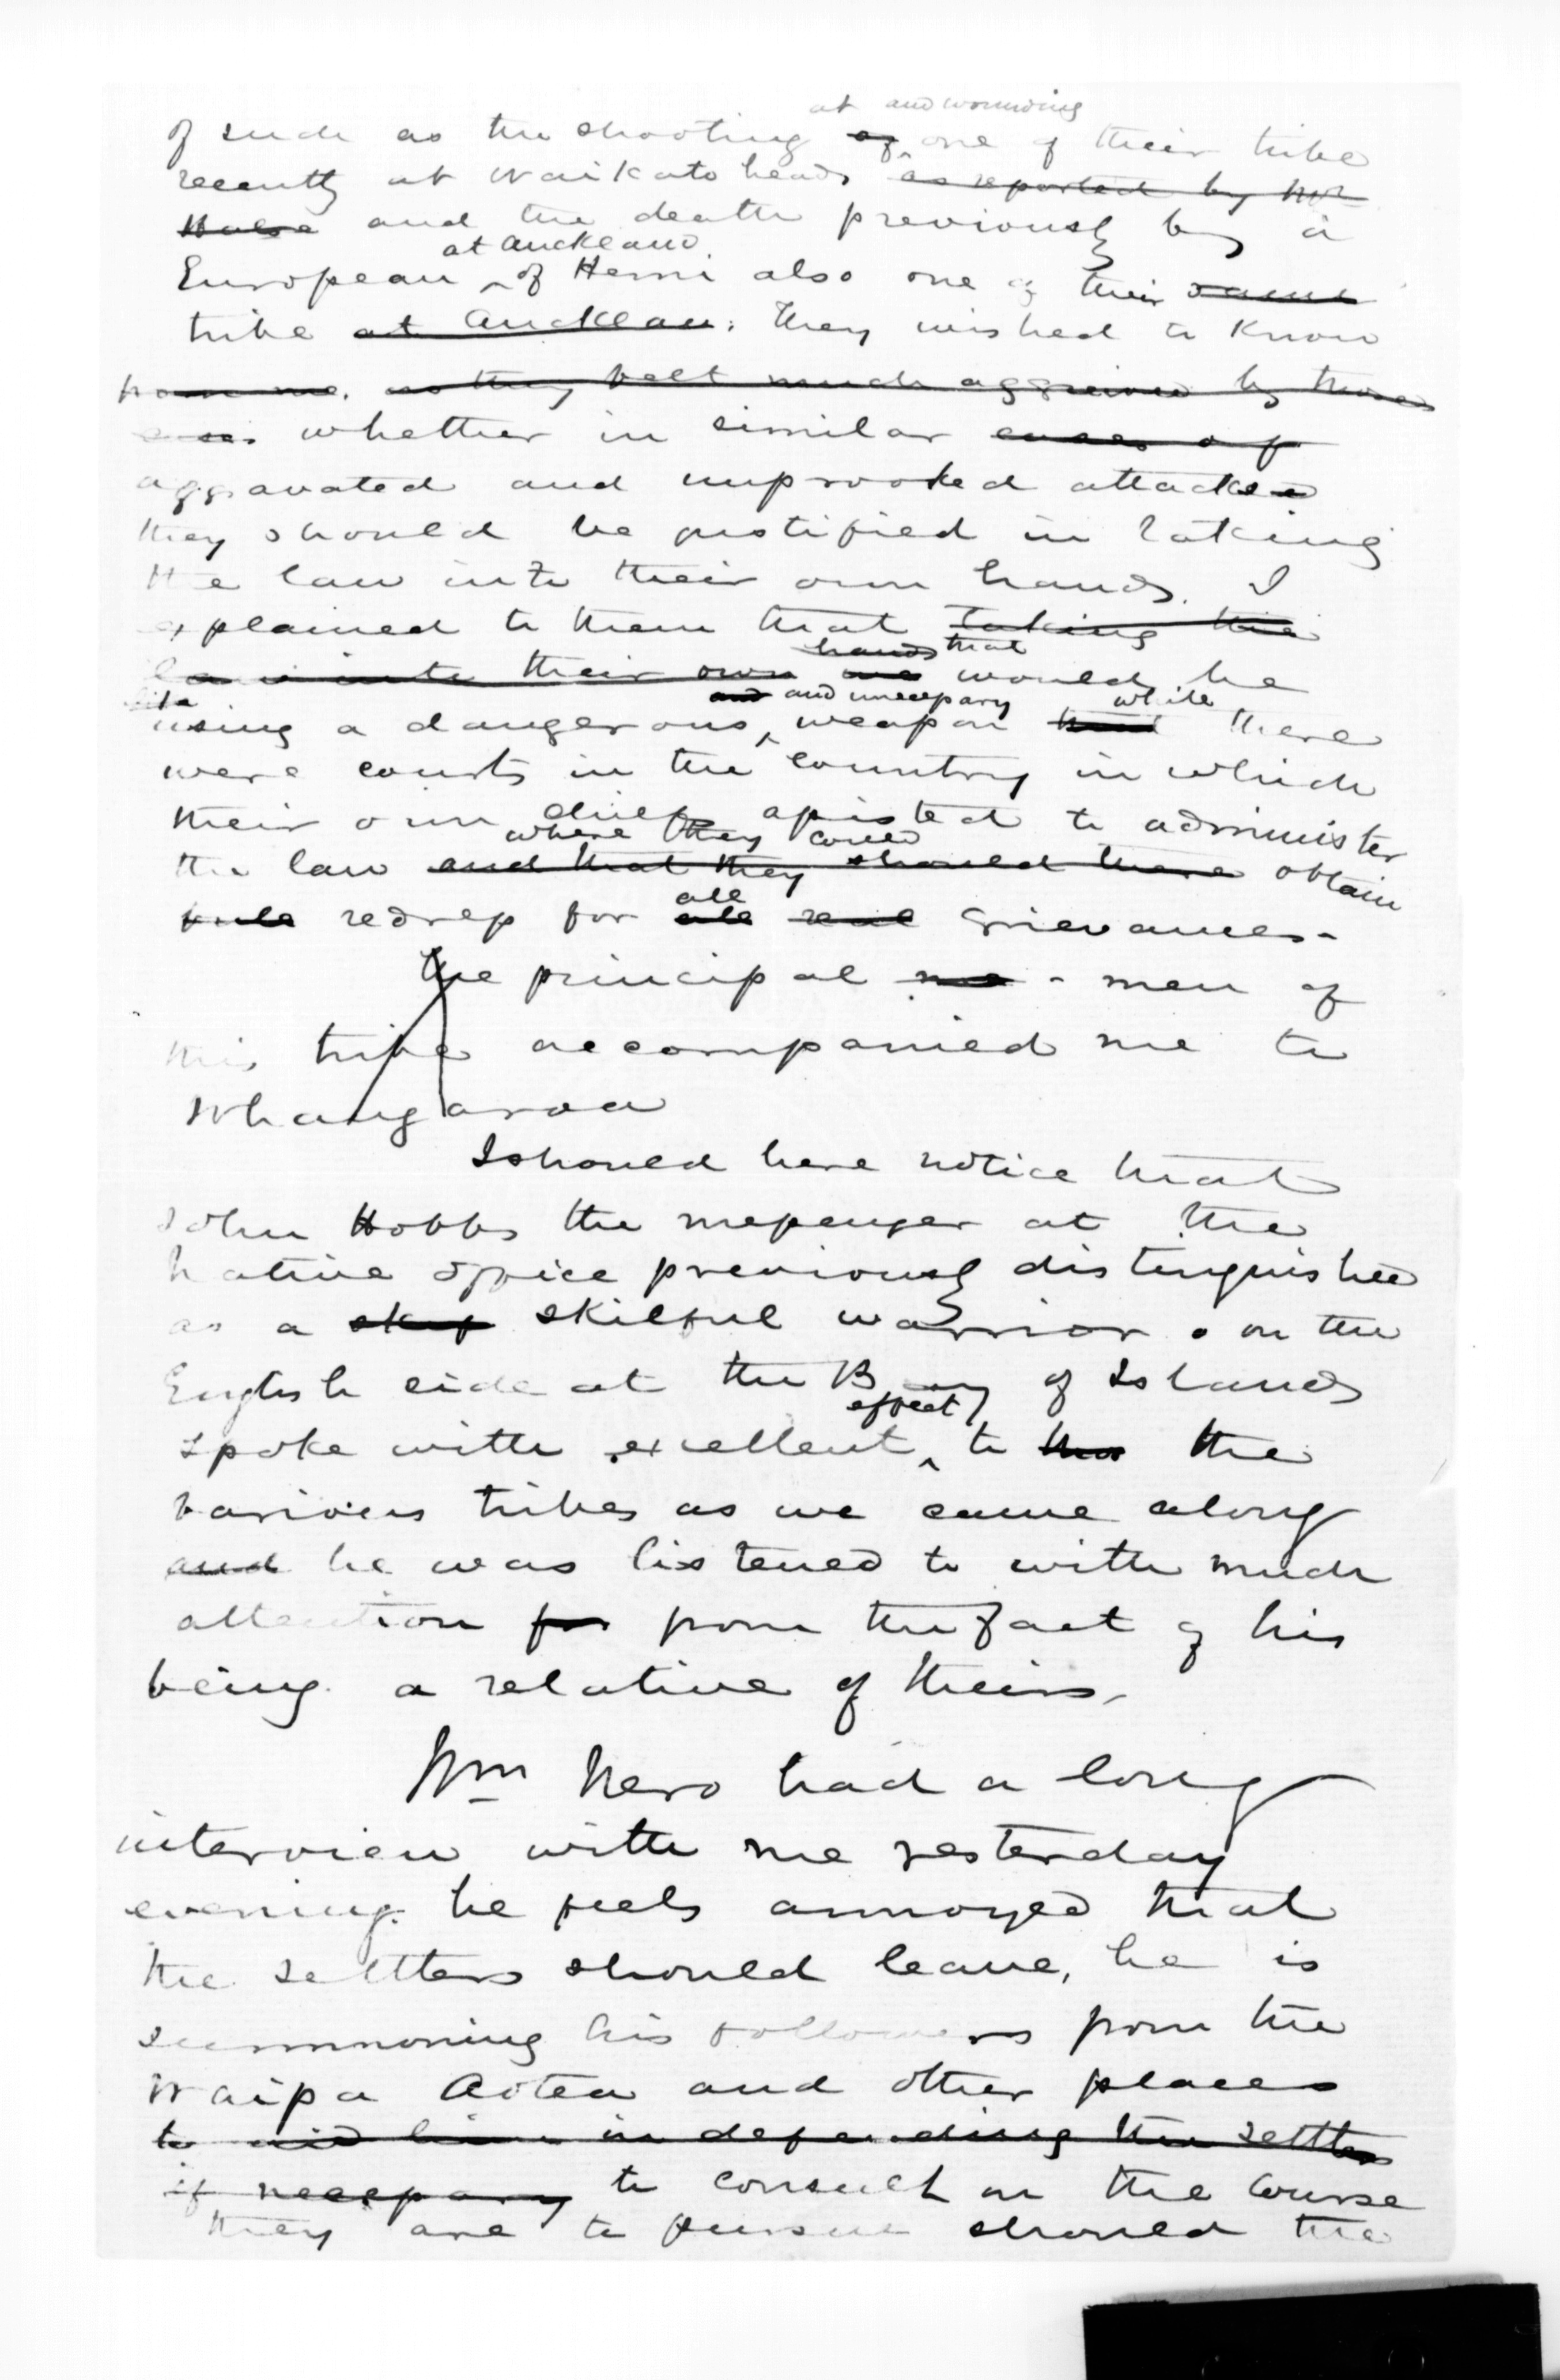 at and wounding
of such as the shooting of one of their tribe
recently at Waikato heads as reported by Mr
Halse and the death previously by a
at Auckland
European of Hemi also one of their same
tribe at Auckland: they wished to know
from me, as they felt much aggrieved by these
whether in similar cases of
aggravated and unprovoked attacks
they should be justified in taking
the law into their own hands. I
explained to them that taking the
hands that
law into their own would be
and and unnecessary while
like using a dangerous weapon there
were courts in the country in which
their own chiefs assisted to administer
where they could
the law and that they should there obtain
all
full redress for all real grievances-
The principal me - men of
this tribe accompanied me to
Whangaroa
I should here notice that
John Hobbs the messenger at the
Native Office previously distinguished
as a skilful warrior on the
English side at the Bay of Islands
effect
spoke with excellent to the
various tribes as we came along
and he was listened to with much
attention for from the fact of his
being a relative of theirs,
Wm Nero had a long
interview with me yesterday
evening. he feels annoyed that
the settlers should leave, he is
summoning his followers from the
Waipa Aotea and other places
to aid him in defending the settlers
if necessary to consult on the course
they are to pursue should the